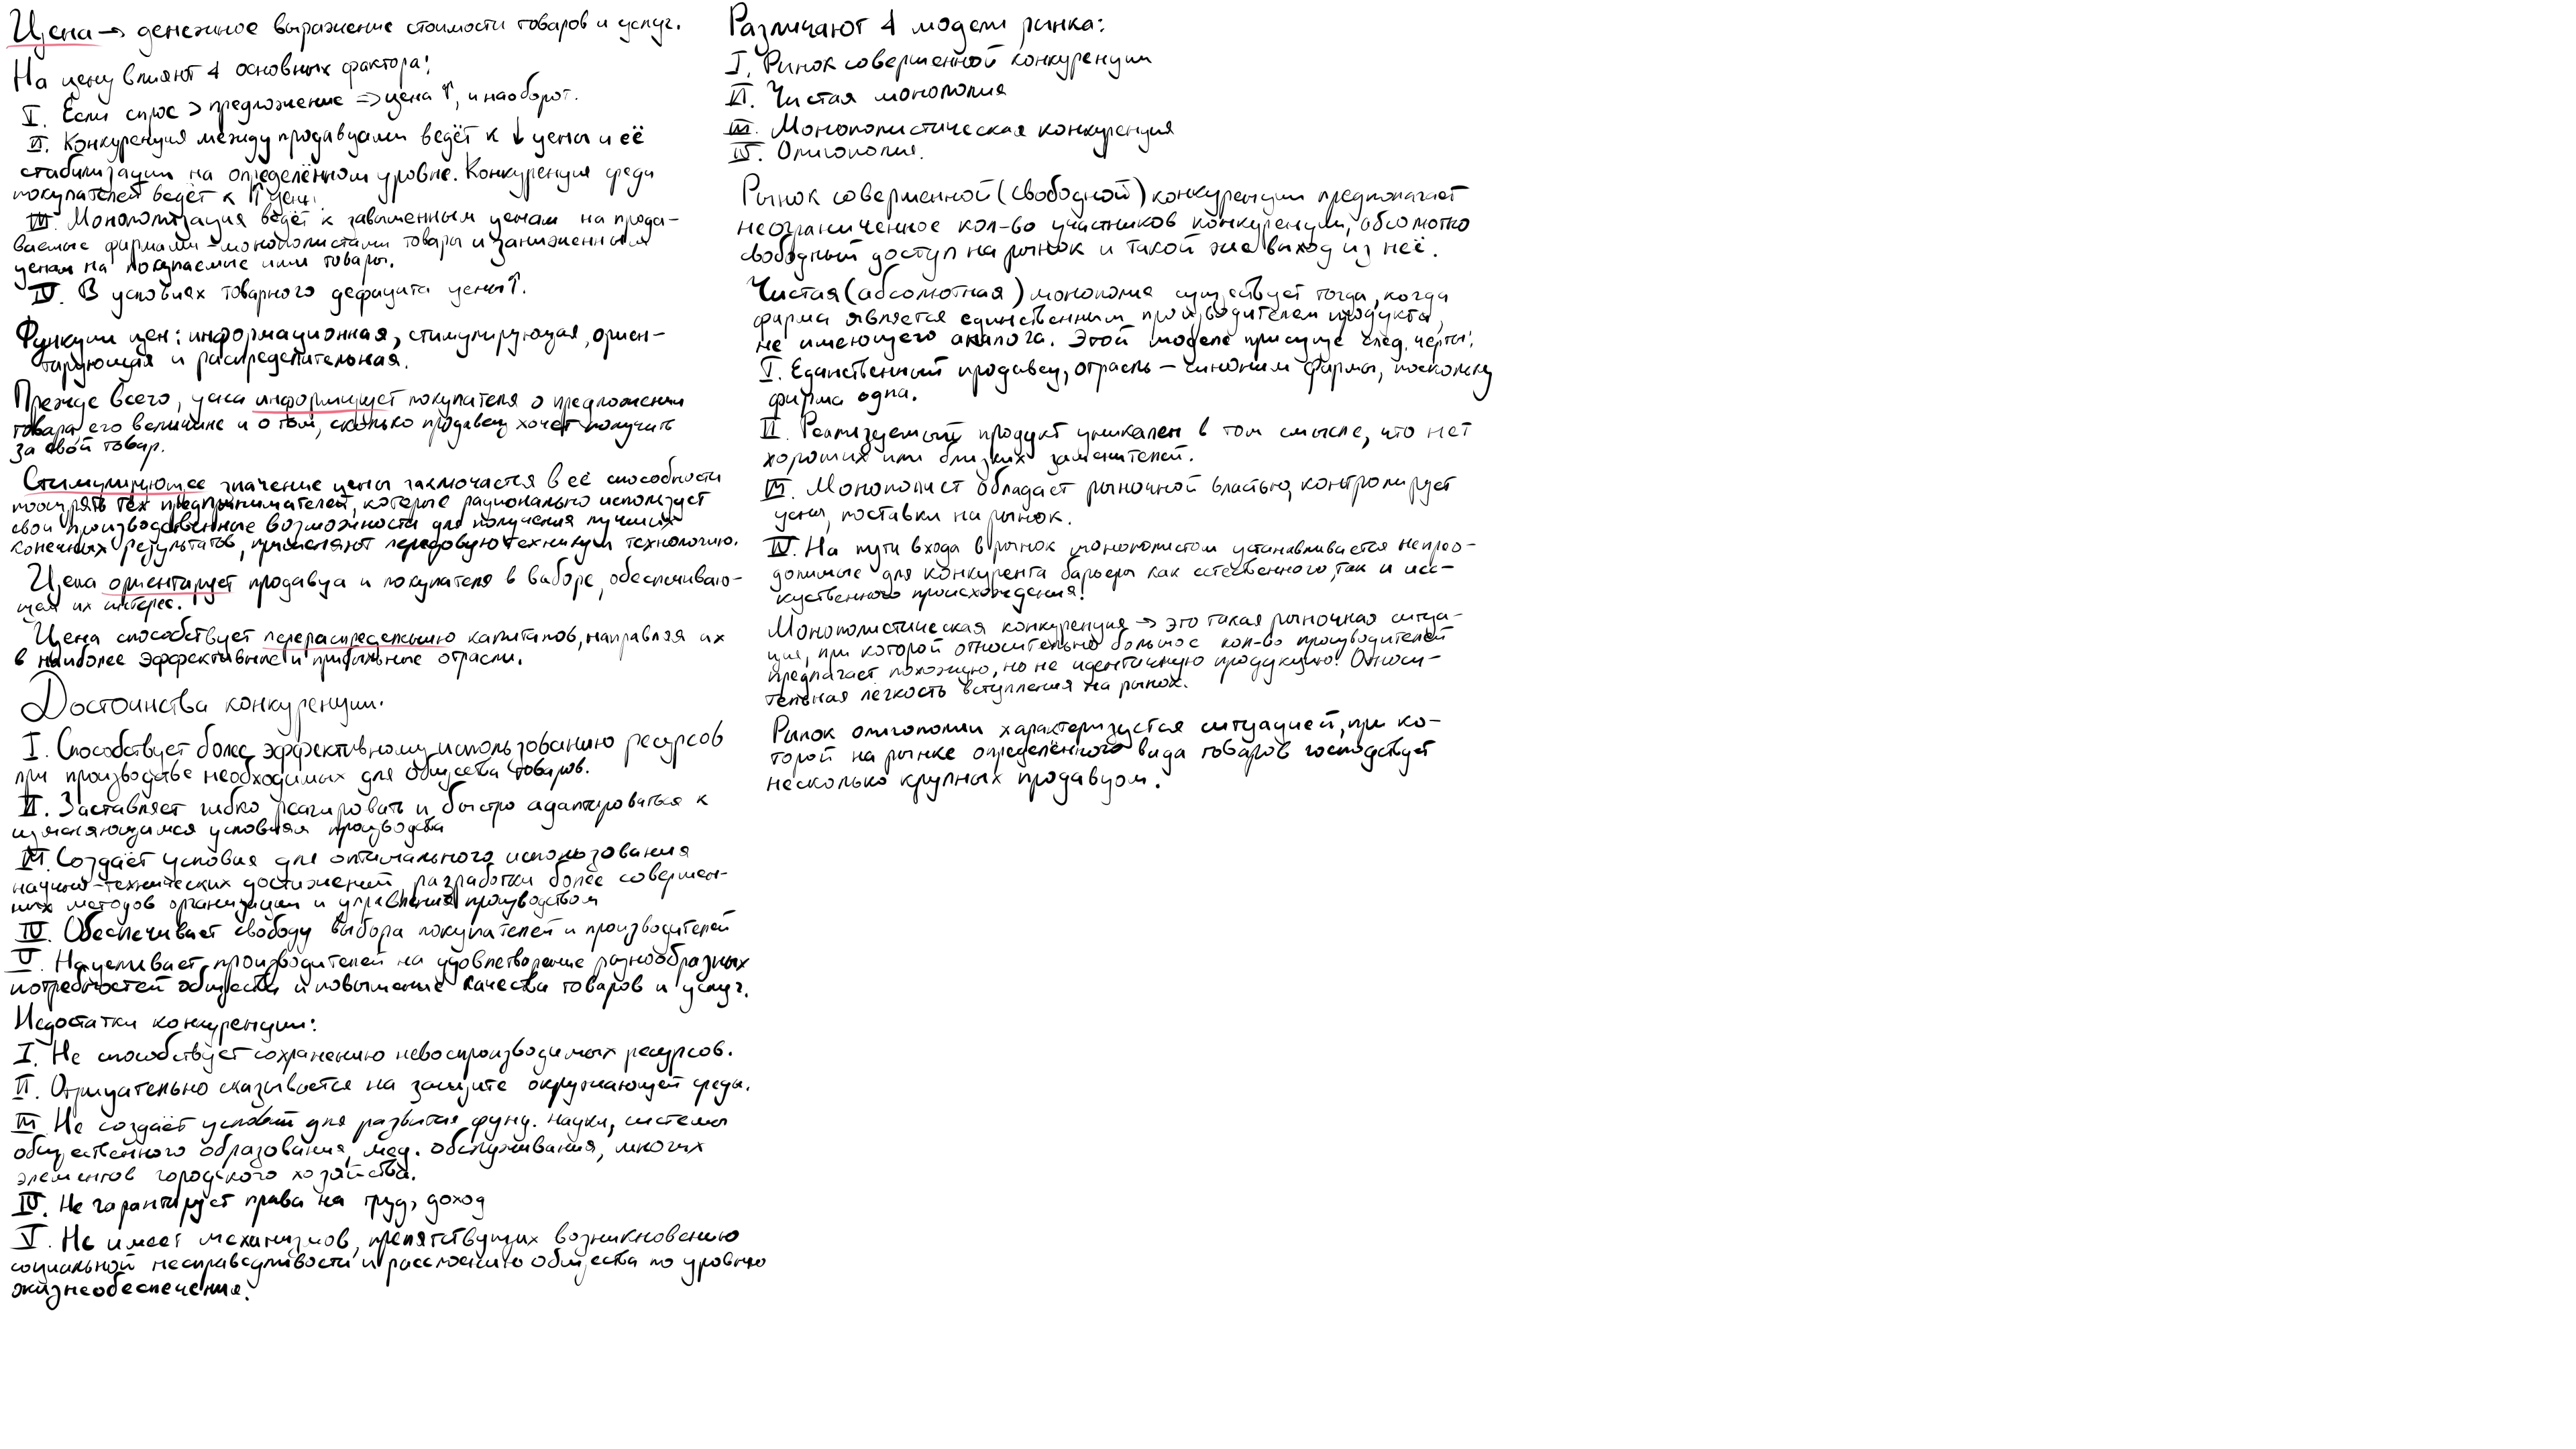 Цена → денежное выражение стоимости товаров и услуг.
На цену влияют 4 основных фактора:
I. Если спрос > предложение => цена ↑, и наоборот.
II. Конкуренция между продавцами ведёт к ↓ цены и её
стабилизации на определённом уровне. Конкуренция среди
покупателей ведёт к ↑ цен.
III. Монополизация ведёт к завышенным ценам на прода-
ваемые фирмами-монополистами товары и заниженным
ценам на покупаемые ими товары.
IV. В условиях товарного дефицита цены ↑.
Функции цен: информационная, стимулирующая, ориен-
тирующая и распределительная.
Прежде всего, цена информирует покупателя о предложении
товара, его величине и о том, сколько продавец хочет получить
за свой товар.
Стимулирующее значение цены заключается в её способности
поощрять тех предпринимателей, которые рационально использует
свои производственные возможности для получения лучших
конечных результатов, применяют передовую технику и технологию.
Цена ориентирует продавца и покупателя в выборе, обеспечиваю-
щая их интерес.
Цена способствует перераспределению капиталов, направляя их
в наиболее эффективные и прибыльные отрасли.
Достоинства конкуренции:
I. Способствует более эффективному использованию ресурсов
при производстве необходимых для общества товаров.
II. Заставляет гибко реагировать и быстро адаптироваться к
изменяющимся условиям производства
III. Создаёт условия для оптимального использования
научно-технических достижений, разработки более совершен-
ных методов организации и управления производством
IV. Обеспечивает свободу выбора покупателей и производителей
V. Нацеливает производителей на удовлетворение разнообразных
потребностей общества и повышение качества товаров и услуг.
Недостатки конкуренции:
I. Не способствует сохранению невоспроизводимых ресурсов.
II. Отрицательно сказывается на защите окружающей среды.
III. Не создаёт условий для развития фунд. науки, системы
общественного образования, мед. обслуживания, многих
элементов городского хозяйства.
IV. Не гарантирует права на труд, доход
V. Не имеет механизмов, препятствующих возникновению
социальной несправедливости и расслоению общества по уровню
жизнеобеспечения.
Различают 4 модели рынка:
I. Рынок совершенной конкуренции
II. Чистая монополия
III. Монополистическая конкуренция
IV. Олигополия.
Рынок соверменной (свободной) конкуренции предполагает
неограниченное кол-во участников конкуренции, абсолютно
свободный доступ на рынок и такой же выход из неё.
Чистая (абсолютная) монополия существует тогда, когда
фирма является единственным производителем продукта,
не имеющего аналога. Этой модели присуще след. черты:
I. Единственный продавец, отрасль – синоним фирмы, поскольку
фирма одна.
II. Реализуемый продукт уникален в том смысле, что нет
хороших или близких заменителей.
III. Монополист обладает рыночной властью, контролирует
цены, поставки на рынок.
IV. На пути входа в рынок монополистом устанавливается непрео-
долимые для конкурента барьеры как естественного, так и исс-
куственного происхождения!
Монополистическая конкуренция → это такая рыночная ситуа-
ция, при которой относительно большое кол-во производителей
предлагает похожую, но не идентичную продукцию. Относи-
тельная лёгкость вступления на рынок.
Рынок олигополии характеризуется ситуацией, при ко-
торой на рынке определённого вида товаров господствует
несколько крупных продавцом.